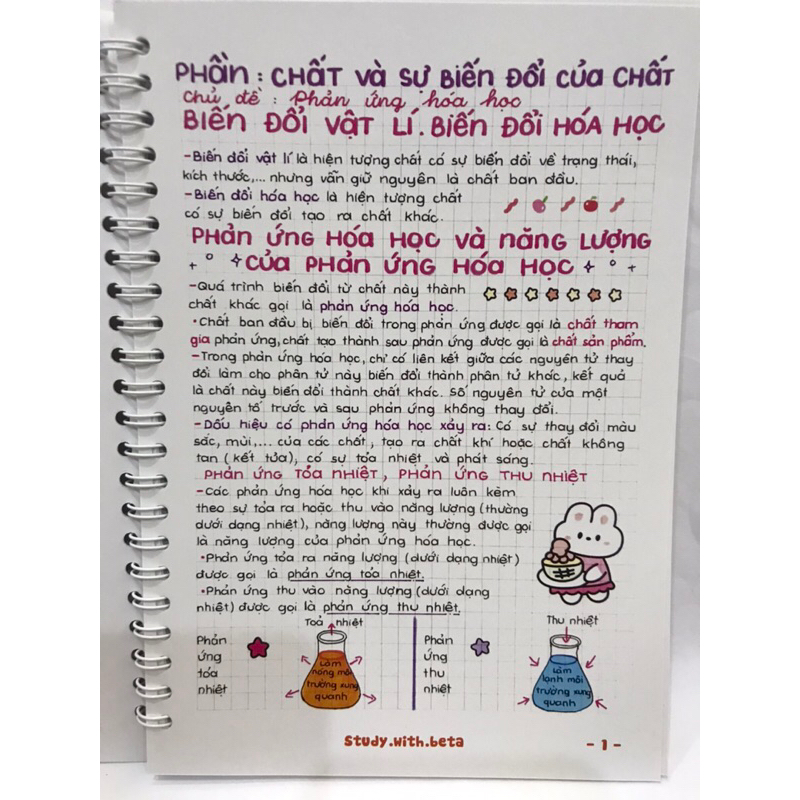 PHẦN: CHẤT VÀ SỰ BIẾN ĐỔI CỦA CHẤT
Chủ đề: Phản ứng hóa học
BIẾN ĐỔI VẬT LÍ. BIẾN ĐỔI HÓA HỌC
-Biến đổi vật lí là hiện tượng chất có sự biến đổi về trạng thái,
kích thước,... nhưng vẫn giữ nguyên là chất ban đầu.
-Biến đổi hóa học là hiện tượng chất
có sự biến đổi tạo ra chất khác.
PHẢN ỨNG HÓA HỌC VÀ NĂNG LƯỢNG
CỦA PHẢN ỨNG HÓA HỌC
-Quá trình biến đổi từ chất này thành
chất khác gọi là phản ứng hóa học.
•Chất ban đầu bị biến đổi trong phản ứng được gọi là chất tham
gia phản ứng, chất tạo thành sau phản ứng được gọi là chất sản phẩm.
-Trong phản ứng hóa học, chỉ có liên kết giữa các nguyên tử thay
đổi làm cho phân tử này biến đổi thành phân tử khác, kết quả
là chất này biến đổi thành chất khác. Số nguyên tử của một
nguyên tố trước và sau phản ứng không thay đổi.
- Dấu hiệu có phản ứng hóa học xảy ra: Có sự thay đổi màu
sắc, mùi,... của các chất, tạo ra chất khí hoặc chất không
tan (kết tủa), có sự tỏa nhiệt và phát sáng.
PHẢN ỨNG TỎA NHIỆT, PHẢN ỨNG THU NHIỆT
-Các phản ứng hóa học khi xảy ra luôn kèm
theo sự tỏa ra hoặc thu vào năng lượng (thường
dưới dạng nhiệt), năng lượng này thường được gọi
là năng lượng của phản ứng hóa học.
•Phản ứng tỏa ra năng lượng (dưới dạng nhiệt)
được gọi là phản ứng tỏa nhiệt.
•Phản ứng thu vào năng lượng (dưới dạng
nhiệt) được gọi là phản ứng thu nhiệt.
Phản
ứng
tỏa
nhiệt
Toả nhiệt
Làm
nóng môi
trường xung
quanh
Phản
ứng
thu
nhiệt
Thu nhiệt
Làm
lạnh môi
trường xung
quanh
Study.with.beta
- 1 -